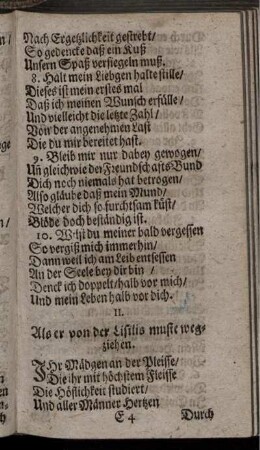 Nach Ergetzlichkeit gestrebt/
So gedencke daß ein Kuß
Unsern Spaß versiegeln muß.
8. Halt mein Liebgen halte stille/
Dieses ist mein erstes mal
Daß ich meinen Wunsch erfülle/
Und vielleicht die letzte Zahl/
Von der angenehmen Last
Die du mir bereitet hast.
9. Bleib mir nur dabey gewogen/
Uñ gleichwie der Freundschafts-Bund
Dich noch niemals hat betrogen/
Also gläube daß mein Mund/
Welcher dich so furchtsam küst/
Blöde doch beständig ist.
10. Wilst du meiner bald vergessen
So vergiß mich immerhin/
Dann weil ich am Leib entsessen
An der Seele bey dir bin /
Denck ich doppelt/halb vor mich/
Und mein Leben halb vor dich.
II.
Als er von der Lisilis muste weg-
ziehen.
IHr Mädgen an der Pleisse/
Die ihr mit höchstem Fleisse
Die Höflichkeit studiert/
Und aller Männer Hertzen
E 4 Durch